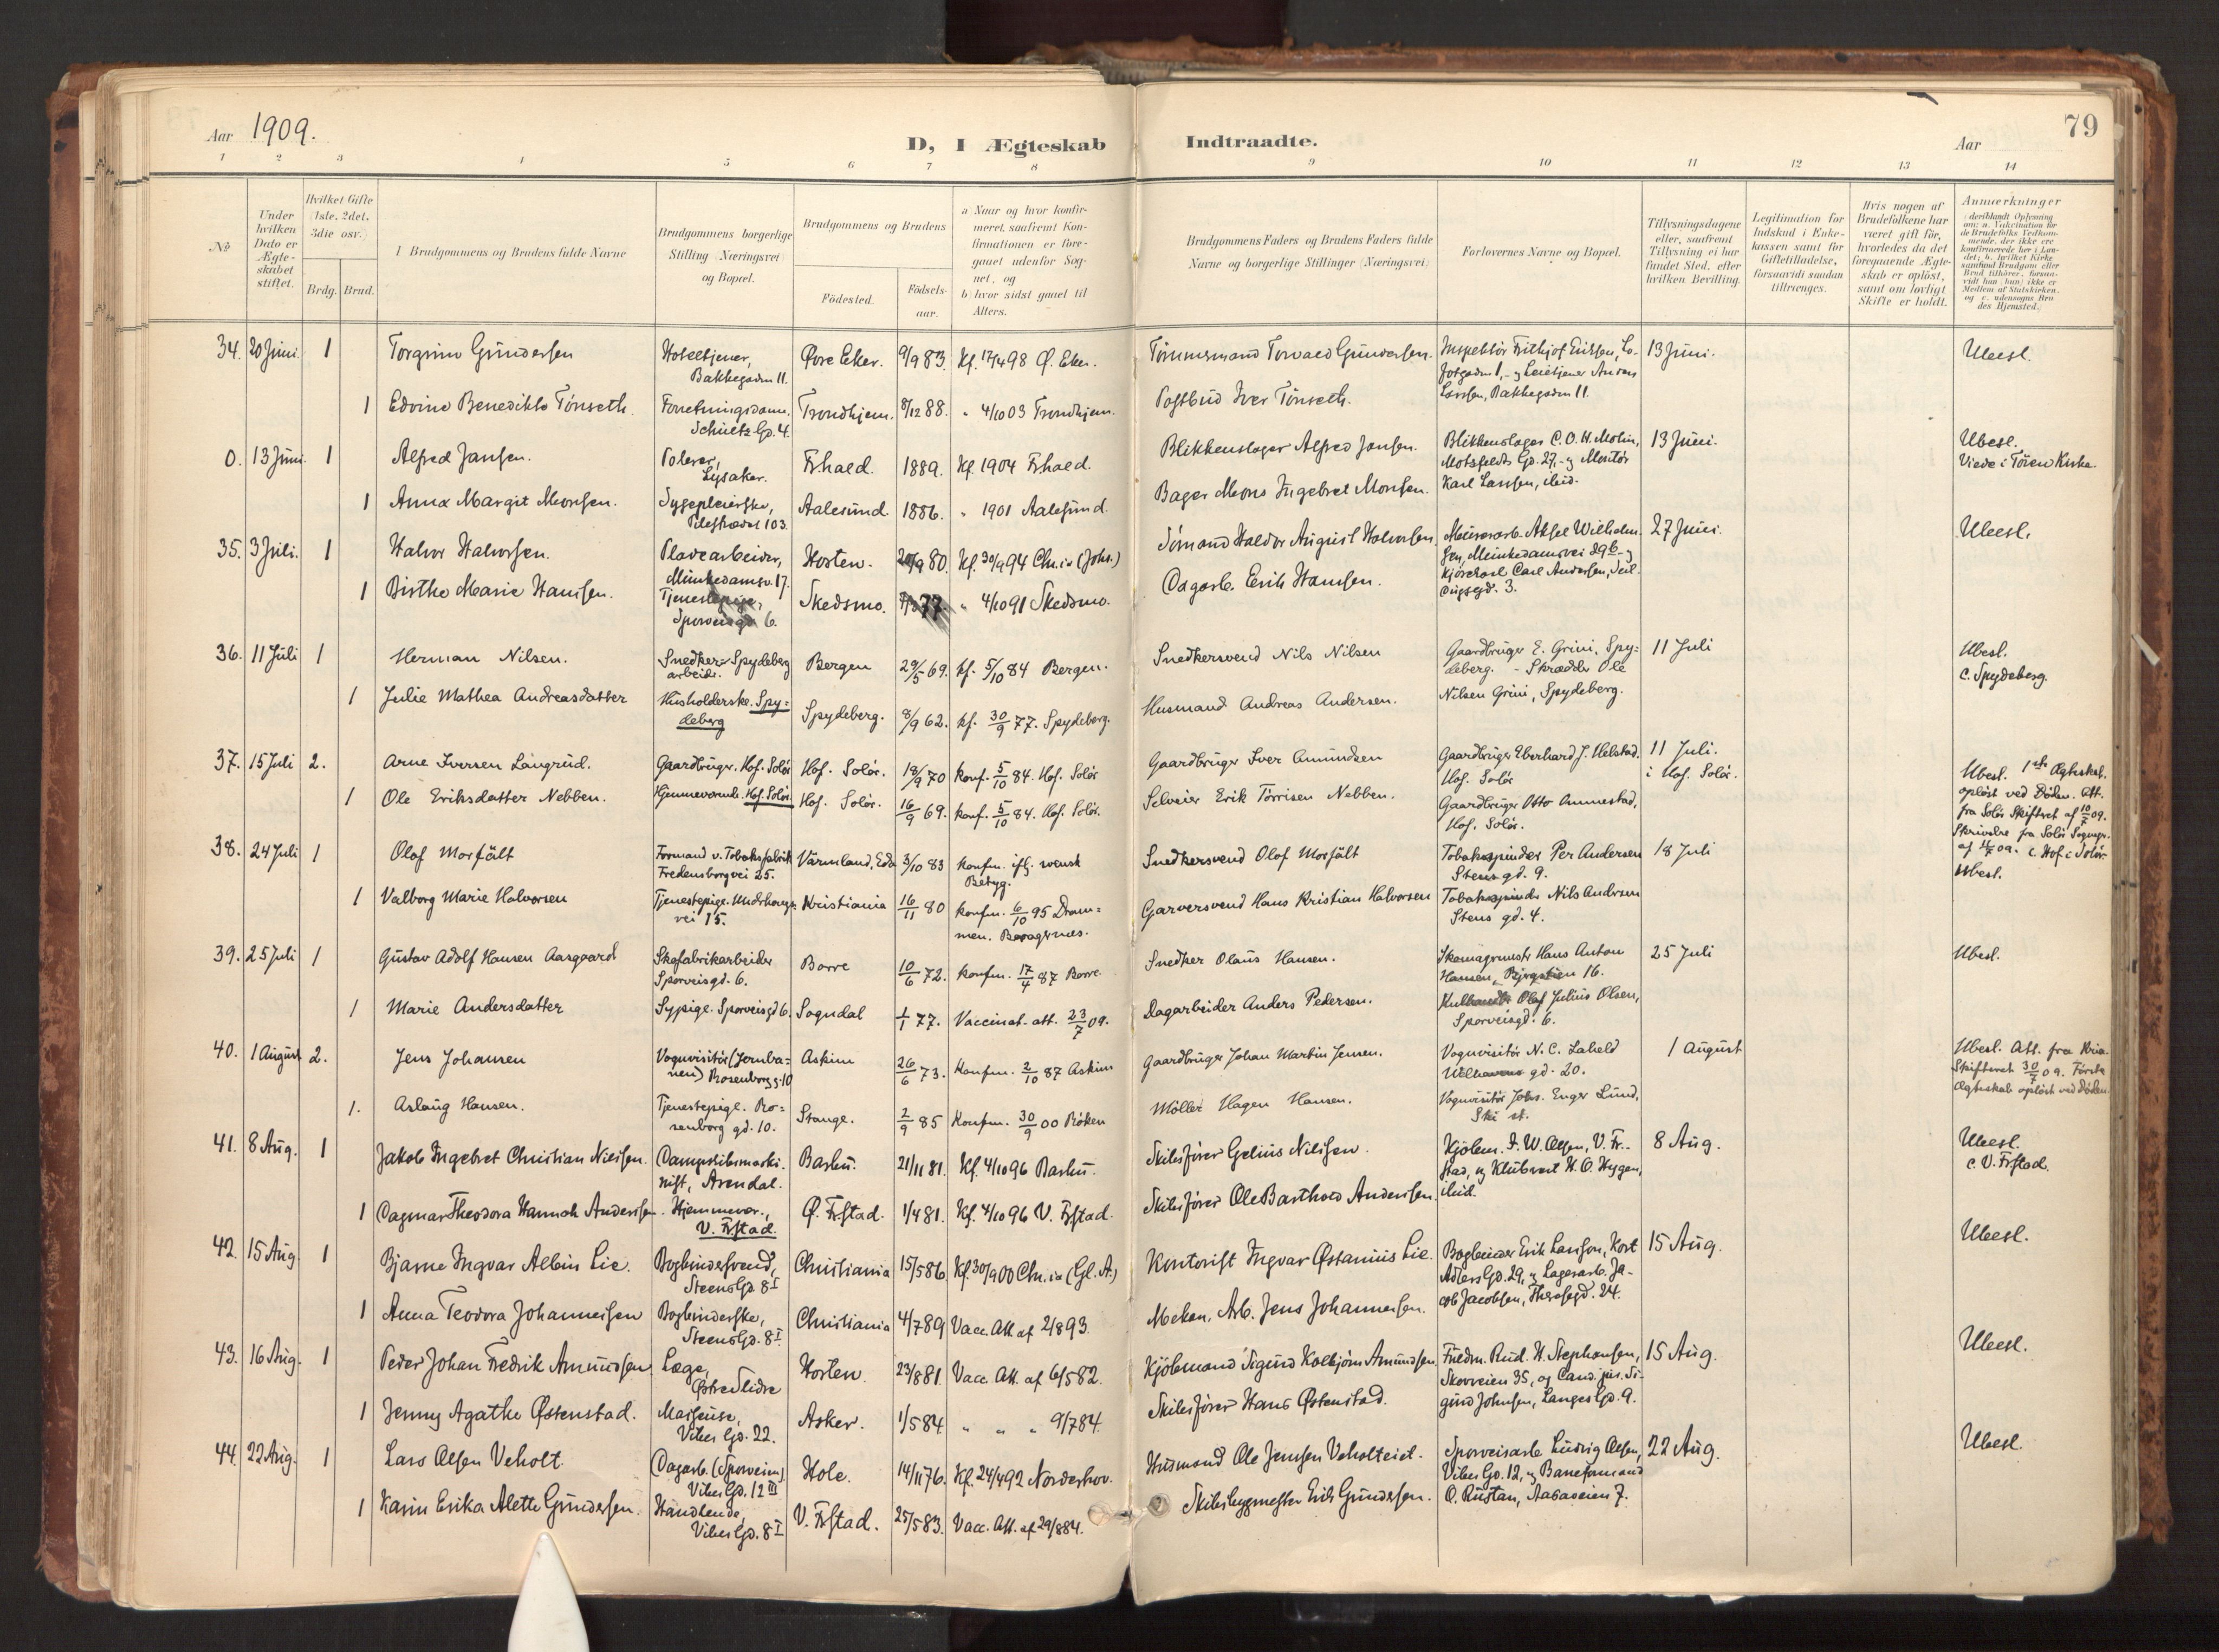 Aar 1909.
D, I Ægteskab Indtraadte.
Aar
79
1 2 3 4 5 6 7 8 9 10 11 12 13 14
No
Under hvilken Dato er Ægteskabet stiftet.
Hvilket Gifte (1ste, 2det, 3die osv.)
Brdg. Brud.
Brudgommens og Brudens fulde Navne
Brudgommens borgerlige Stilling (Næringsvei) og Bopæl.
Brudgommens og Brudens
Födested.
Födselsaar.
a) Naar og hvor konfirmeret, saafremt Konfirmationen er foregaaet udenfor Sognet, og
b) hvor sidst gaaet til Alters.
Brudgommens Faders og Brudens Faders fulde Navne og borgerlige Stillinger (Næringsvei)
Forlovernes Navne og Bopæl.
Tillysningsdagene eller, saafremt Tillysning ei har fundet Sted, efter hvilken Bevilling.
Legitimation for Indskud i Enkekassen samt for Giftetilladelse, forsaavidt saadan tiltrænges.
Hvis nogen af Brudefolkene har været gift før, hvorledes da det foregaaende Ægteskab er opløst, samt om lovligt Skifte er holdt.
Anmerkninger
34. 20 Juni. 1 Torgrim Gundersen Hoteltjener, Bakkegaden 11. Øvre Eker. 9/9 83. Kf. 17/4 98 Ø. Eker. Tømmermand Torvald Gundersen. 13 Juni. Ubesl.
Larsen, Bakkegaden 11.
1 Edvine Benedikte Tønseth. Forretningsdame, Schultz Gd. 4. Trondhjem. 8/12 88. " 4/10 03 Trondhjem. Postbud Iver Tønseth.
0. 13 Juni. 1 Alfred Jansen. Polerer, Lysaker. Frhald. 1889. Kf. 1904 Frhald. Blikkenslager Alfred Jansen. Blikkenslager C. O. H. Molin, Motzfeldts Gd. 27, og Montør Karl Larsen, ibid. 13 Juni. Ubesl. Viede i Tøien Kirke.
1 Anna Margit Monsen. Sygepleierske, Pilestrædet 103. Aalesund. 1886. " 1901 Aalesund. Bager Mons Ingebret Monsen.
35. 3 Juli. 1 Halvor Halvorsen. Pladearbeider, Munkedamsv. 17. Horten. 80. Kf. 30/9 94 Chr.ia (Johs.) Sømand Haldor August Halvorsen. Murerarb. Aksel Wilhelmsen, Munkedamsvei 29b og Kjørekarl Carl Andersen, 3. 27 Juni. Ubesl.
1 Birthe Marie Hansen. Tjenestepige, Sporveisgd. 6. Skedsmo. 77. " 4/10 91 Skedsmo. Dagarb. Erik Hansen.
36. 11 Juli 1 Herman Nilsen. Snedker-arbeider. Spydeberg Bergen 29/5 69. kf. 5/10 84 Bergen. Snedkersvend Nils Nilsen Gaardbruger E. Grini, Spydeberg. - Skrædder Ole Nilsen Grini, Spydeberg. 11 Juli Ubesl. c. Spydeberg.
1 Julie Mathea Andreasdatter Husholderske. Spydeberg Spydeberg. 8/9 62. kf. 30/9 77. Spydeberg. Husmand Andreas Andersen.
37. 15 Juli 2. Arne Iversen Langrud. Gaardbruger. Hof. Solør Hof. Solør. 18/9 70 konf. 5/10 84. Hof. Solør Gaardbruger Iver Amundsen Gaardbruger Eberhard J. Helstad. Hof. Solør 11 Juli. i Hof. Solør. Ubesl. 1ste Ægteskab. opløst ved Døden. Att. fra Solør Skifteret af 10/7 09.
1 Ole Eriksdatter Nebben. Hjemmeværende. Hof. Solør. Hof. Solør. 16/9 69. konf. 5/10 84. Hof. Solør. Selveier Erik Tørrisen Nebben. Gaardbruger Otto Ommestad, Hof. Solør. Skrivelse fra Solør c. Hof i Solør.
38. 24 Juli 1 Olof Morfält Formand v. Tobaksfabrik Fredensborgvei 25. Värmland, Eda 3/10 83 konfm. ifl. svensk Betyg. Snedkersvend Olof Morfält Tobakspinder Per Andersen Stens gd. 9. 18 Juli Ubesl.
1 Valborg Marie Halvorsen Tjenestepige. Underhaugsvei 15. Kristiania 16/11 80 konfm. 6/10 95 Drammen. Bragernæs. Garversvend Hans Kristian Halvorsen Tobakspinder Nils Andersen Stens gd. 4.
39. 25 Juli 1 Gustav Adolf Hansen Aasgaard Skofabrikarbeider Sporveisgd. 6. Borre 10/6 72. konfm. 17/4 87 Borre Snedker Olaus Hansen. Skomagermester Hans Anton Hansen, 16. 25 Juli Ubesl.
1 Marie Andersdatter Sypige. Sporveisgd 6. Sogndal 1/1 77. Vaccinat. att. 23/7 09. Dagarbeider Anders Pedersen. Kulhandler Olaf Julius Olsen, Sporveisgd. 6.
40. 1 August 2. Jens Johansen Vognvisitør (Jernbanen) Rosenborgg. 10 Askim 26/6 73. Konfm. 2/10 87 Askim Gaardbruger Johan Martin Jensen. Vognvisitør N. C. Laheld Welhavens gd. 20. 1 August Ubesl. Att. fra Kria. Skifteret 30/7 09. Første Ægteskab opløst ved Døden.
1. Aslaug Hansen. Tjenestepige. Rosenborg gd. 10. Stange. 2/9 85 Konfm. 30/9 00 Røken Møller Hagen Hansen. Vognvisitør Johs. Enger Lund, Ski st.
41. 8 Aug. 1 Jakob Ingebret Christian Nielsen. Dampskibsmaskinist, Arendal. Barbu. 21/11 81. Kf. 4/10 96 Barbu. Skibsfører Gelius Nilssen. Kjøbm. F. W. Olsen, V. Frstad, og Klubvert H. O. Hygen, ibid. 8 Aug. Ubesl. c. V. Frstad.
1 Dagmar Theodora Hannah Anderssen. Hjemmevær., V. Frstad. Ø. Frstad. 1/4 81. Kf. 4/10 96 V. Frstad. Skibsfører Ole Barthold Anderssen.
42. 15 Aug. 1 Bjarne Ingvar Albin Lie. Bogbindersvend, Steens Gd. 8 I Christiania 15/5 86. Kf. 30/9 00 Chr.ia (Gl. A.) Kontorist Ingvar Østanius Lie. Bogbinder Erik Larsson, Kort Adlers Gd. 29, og Lagerarb. Jacob Jacobsen, Theresegd. 24. 15 Aug. Ubesl.
1 Anna Teodora Johannessen Bogbinderske, Steens Gd. 8 I Christiania 4/7 89 Vacc. Att. af 2/8 93. Mekan. Arb. Jens Johannessen.
43. 16 Aug. 1 Peder Johan Fredrik Amundsen Læge, Østre Slidre Horten. 23/8 81. Vacc. Att. af 6/5 82. Kjøbmand Sigurd Kolbjørn Amundsen. Fuldm. Rud. H. Stephansen, Skovveien 35, og Cand. jur. Sigurd Johnsen, Langes Gd. 9. 15 Aug. Ubesl.
1 Jenny Agathe Østenstad. Masseuse, Vibes Gd. 22. Asker. 1/5 84 " " " 9/7 84. Skibsfører Hans Østenstad.
44. 22 Aug. 1 Lars Olsen Veholt. Dagarb. (Sporveien) Vibes Gd. 12 III Hole. 14/11 76. Kf. 24/4 92 Norderhov. Husmand Ole Jensen Veholteiet. Sporveisarb. Ludvig Olsen, Vibes Gd. 12, og Baneformand O. Rustan, 7. 22 Aug. Ubesl.
1 Karin Erika Alette Gundersen. Handlende, Vibes Gd. 8 I V. Frstad. 25/5 83. Vacc. Att. af 29/8 84. Skibsbygmester Erik Gundersen.